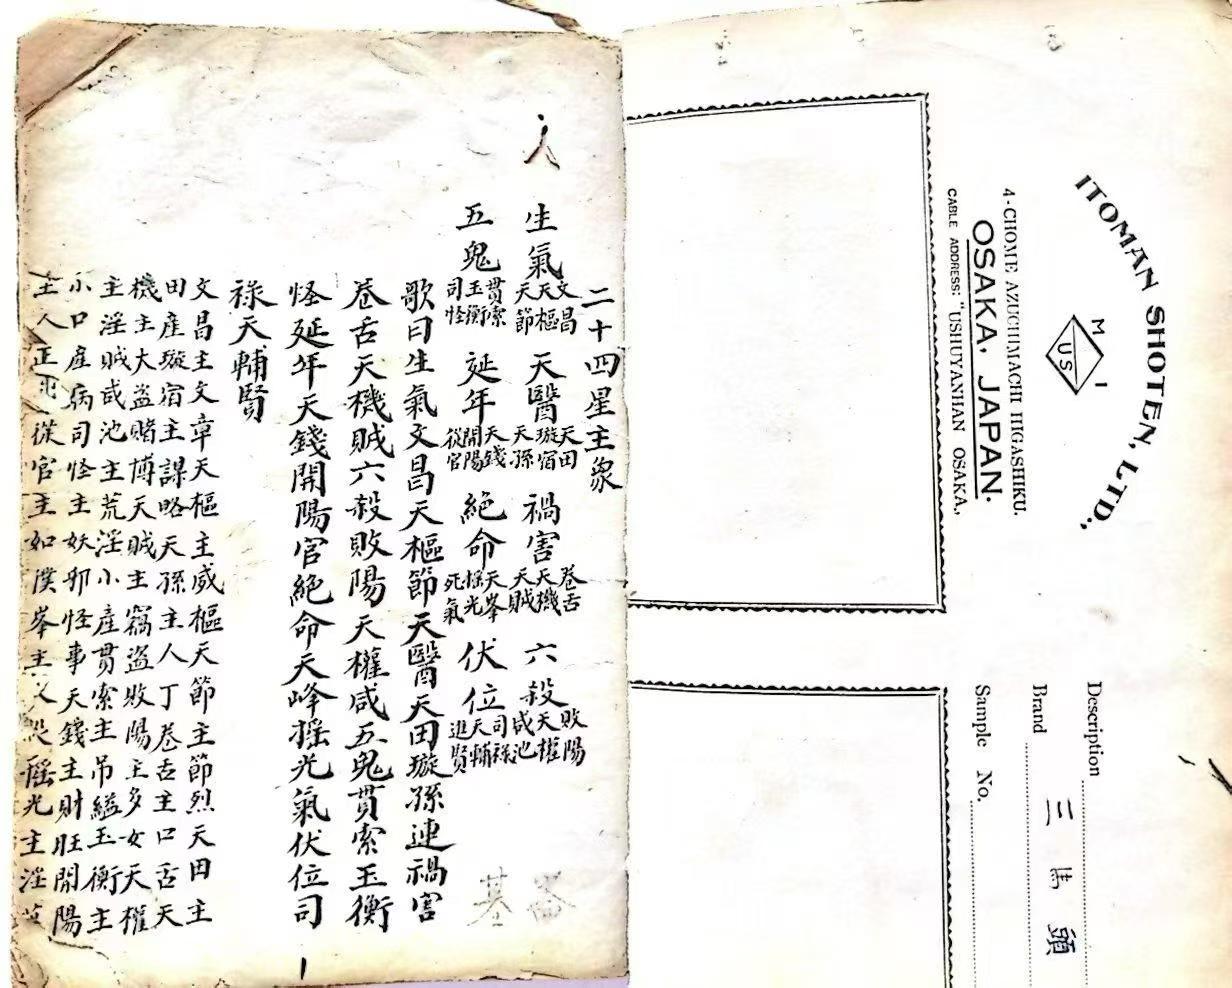 ITOMAN SHOTEN, LTD.,
M I
US
4-CHOME AZUCHIMACHI HIGASHIKU.
OSAKA, JAPAN.
CABLE ADDRESS: "USHUYANHAN OSAKA,,
Description 三 頭
Brand
Sample No.
二十四星主象
生氣 文昌天樞天節 天醫 天田璇宿天孫 禍害 卷舌天機天賊 六殺 敗陽天權咸池
五鬼 貫索玉衡司怪 延年 天錢開陽從官 絕命 天峯搖光死氣 伏位 司祿天輔進賢
歌曰生氣文昌天樞節天醫天田璇孫連禍害
卷舌天機賊六殺敗陽天權咸五鬼貫索玉衡
怪延年天錢開陽官絕命天峰搖光氣伏位司
祿天輔賢
文昌主文章天樞主威樞天節主節烈天田主
田産璇宿主謀略天孫主人丁卷舌主口舌天
機主大盗賭博天賊主竊盗敗陽主多女天權
主淫賊咸池主荒淫小產貫索主吊縊玉衡主
小口產病司怪主妖邪怪事天錢主財旺開陽
主人正從官主如濮峯主人搖光主淫